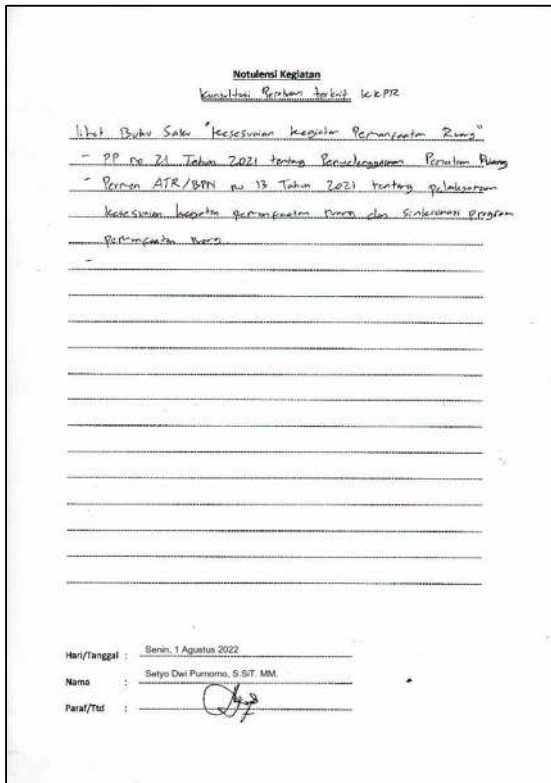 Notulensi Kegiatan
Konsultasi Peraturan terkait KKPR
lihat Buku Saku "Kesesuaian Kegiatan Pemanfaatan Ruang"
- PP no 21 Tahun 2021 tentang Penyelenggaraan Penataan Ruang
- Permen ATR/BPN no 13 Tahun 2021 tentang pelaksanaan
kesesuaian kegiatan pemanfaatan ruang dan Sinkronisasi program
pemanfaatan ruang
-
Hari/Tanggal : Senin, 1 Agustus 2022
Nama : Setyo Dwi Purnomo, S.SiT. MM.
Paraf/Ttd :